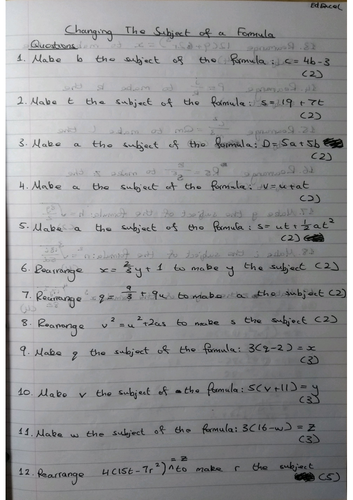 Edexcel
Changing The Subject of a Formula
Questions
1. Make b the subject of the formula: c=4b-3
(2)
2. Make t the subject of the formula: s=19+7t
(2)
3. Make a the subject of the formula: D=5a+5b
(2)
4. Make a the subject of the formula: v=u+at
(2)
5. Make a the subject of the formula: s=ut+½at²
(2)
6. Rearrange x= y+1 to make y the subject (2)
7. Rearrange to make the subject (2)
8. Rearrange v²=u²+2as to make s the subject (2)
9. Make q the subject of the formula: 3(q-2)=x
(3)
10. Make v the subject of the formula: 5(v+11)=y
(3)
11. Make w the subject of the formula: 3(16-w)=z
(3)
=z
12. Rearrange 4(15t-7r²)^to make r the subject
(5)